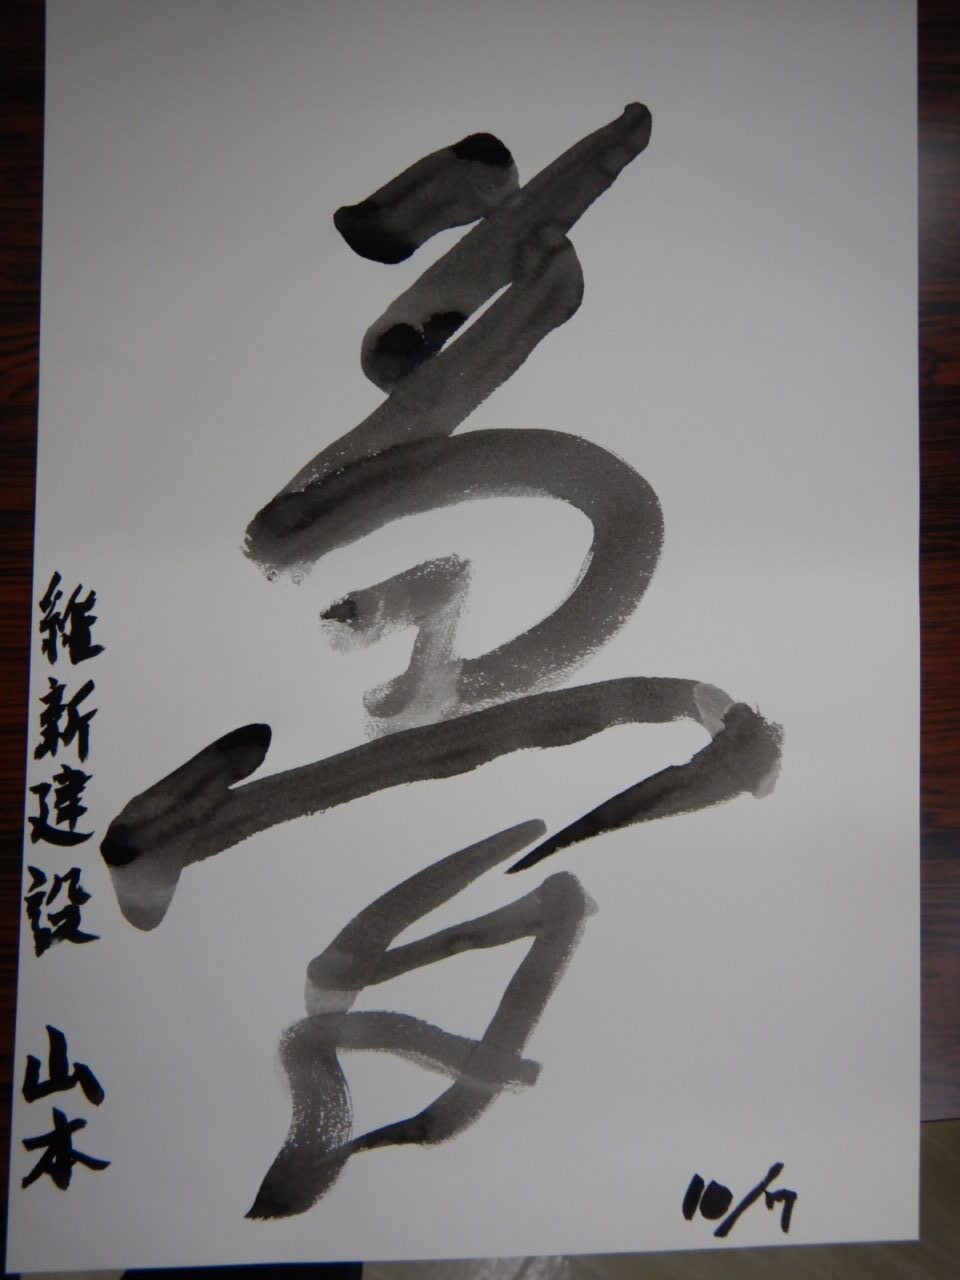 夢
維新建設 山本
10/7